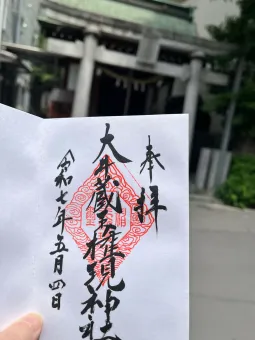 奉拝
大牛蔵王権現神社
令和七年五月四日